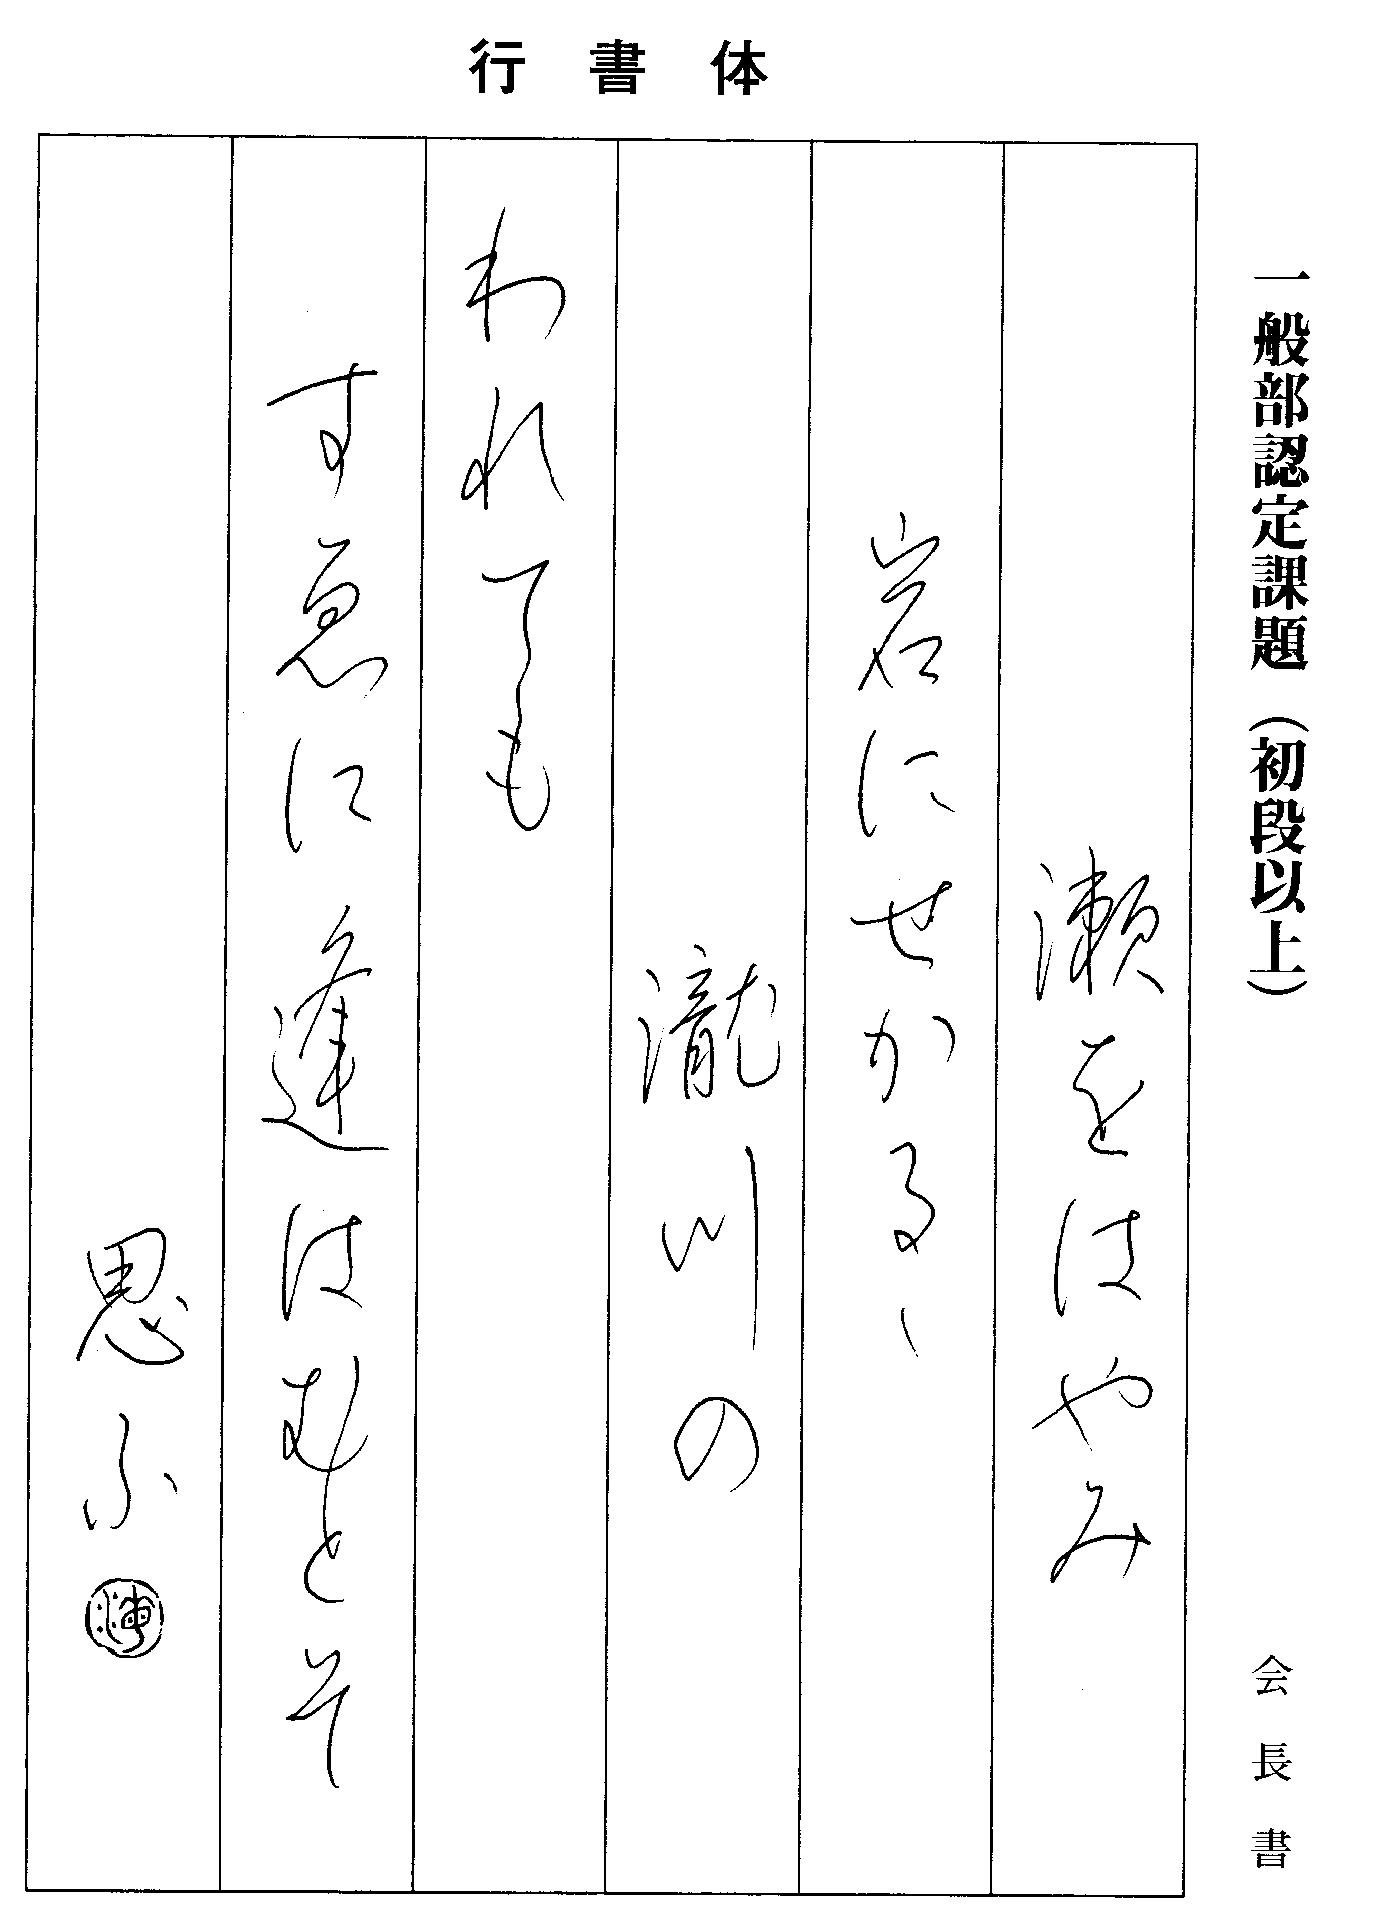 行書体
一般部認定課題（初段以上）
会長書
瀬をはやみ
岩にせかるゝ
瀧川の
われても
すゑに逢はむとそ
思ふ